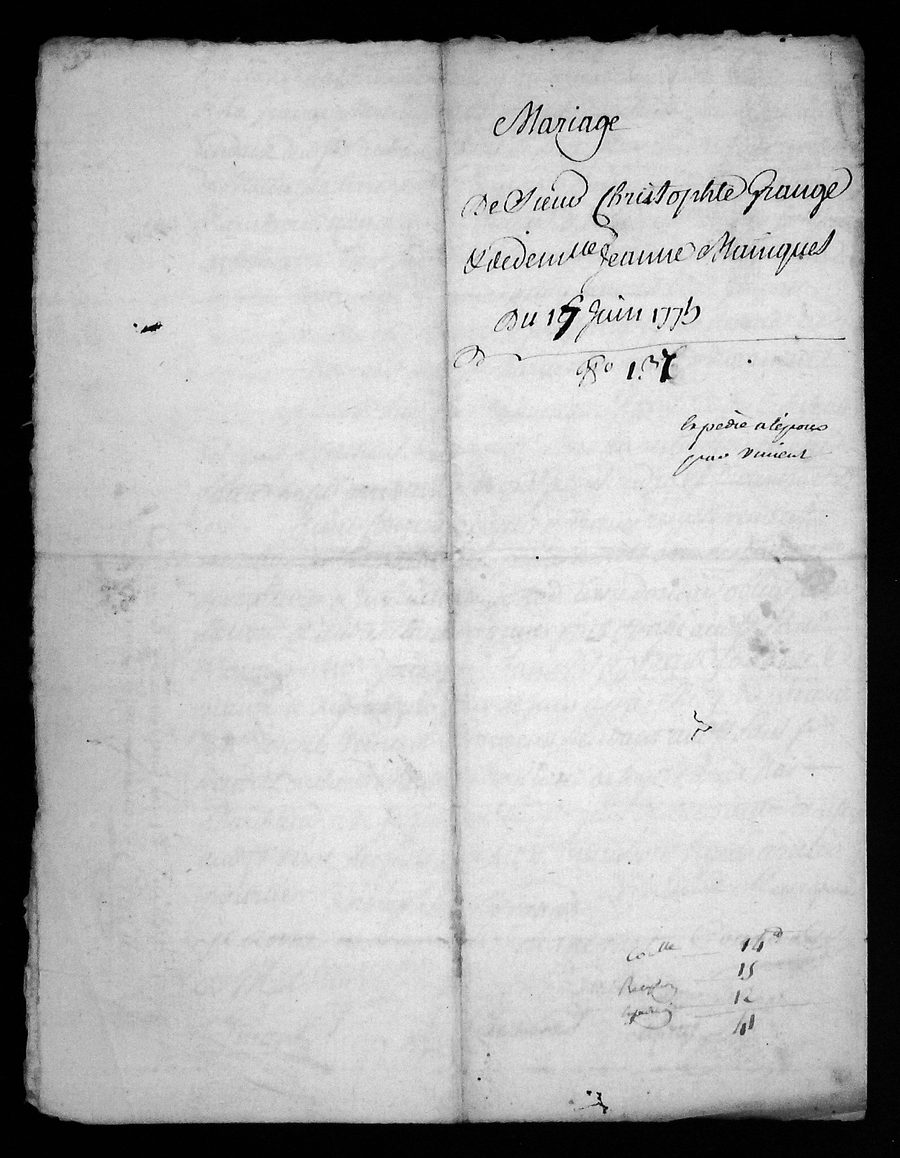 Mariage
De Sieur Christophle Grange
& de demlle Jeanne Mainguet
Du 17 Juin 1775
No 137
Expedié a lepoux
pour
14
15
12
41